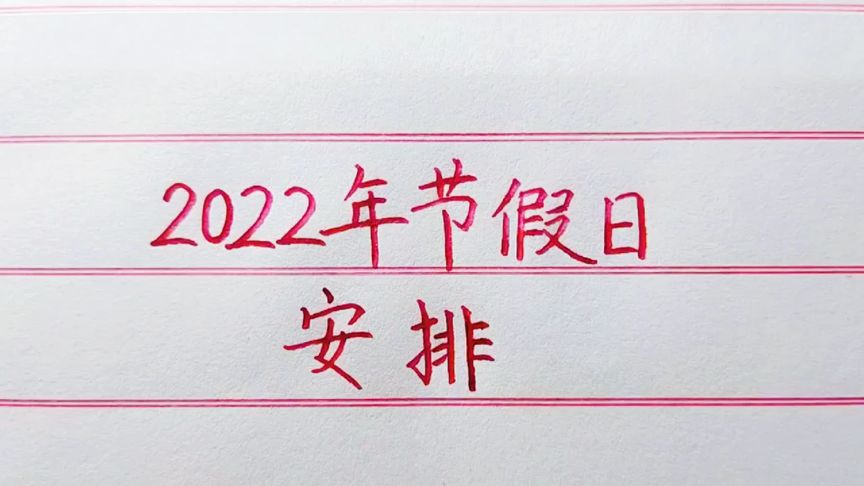 2022年节假日
安排